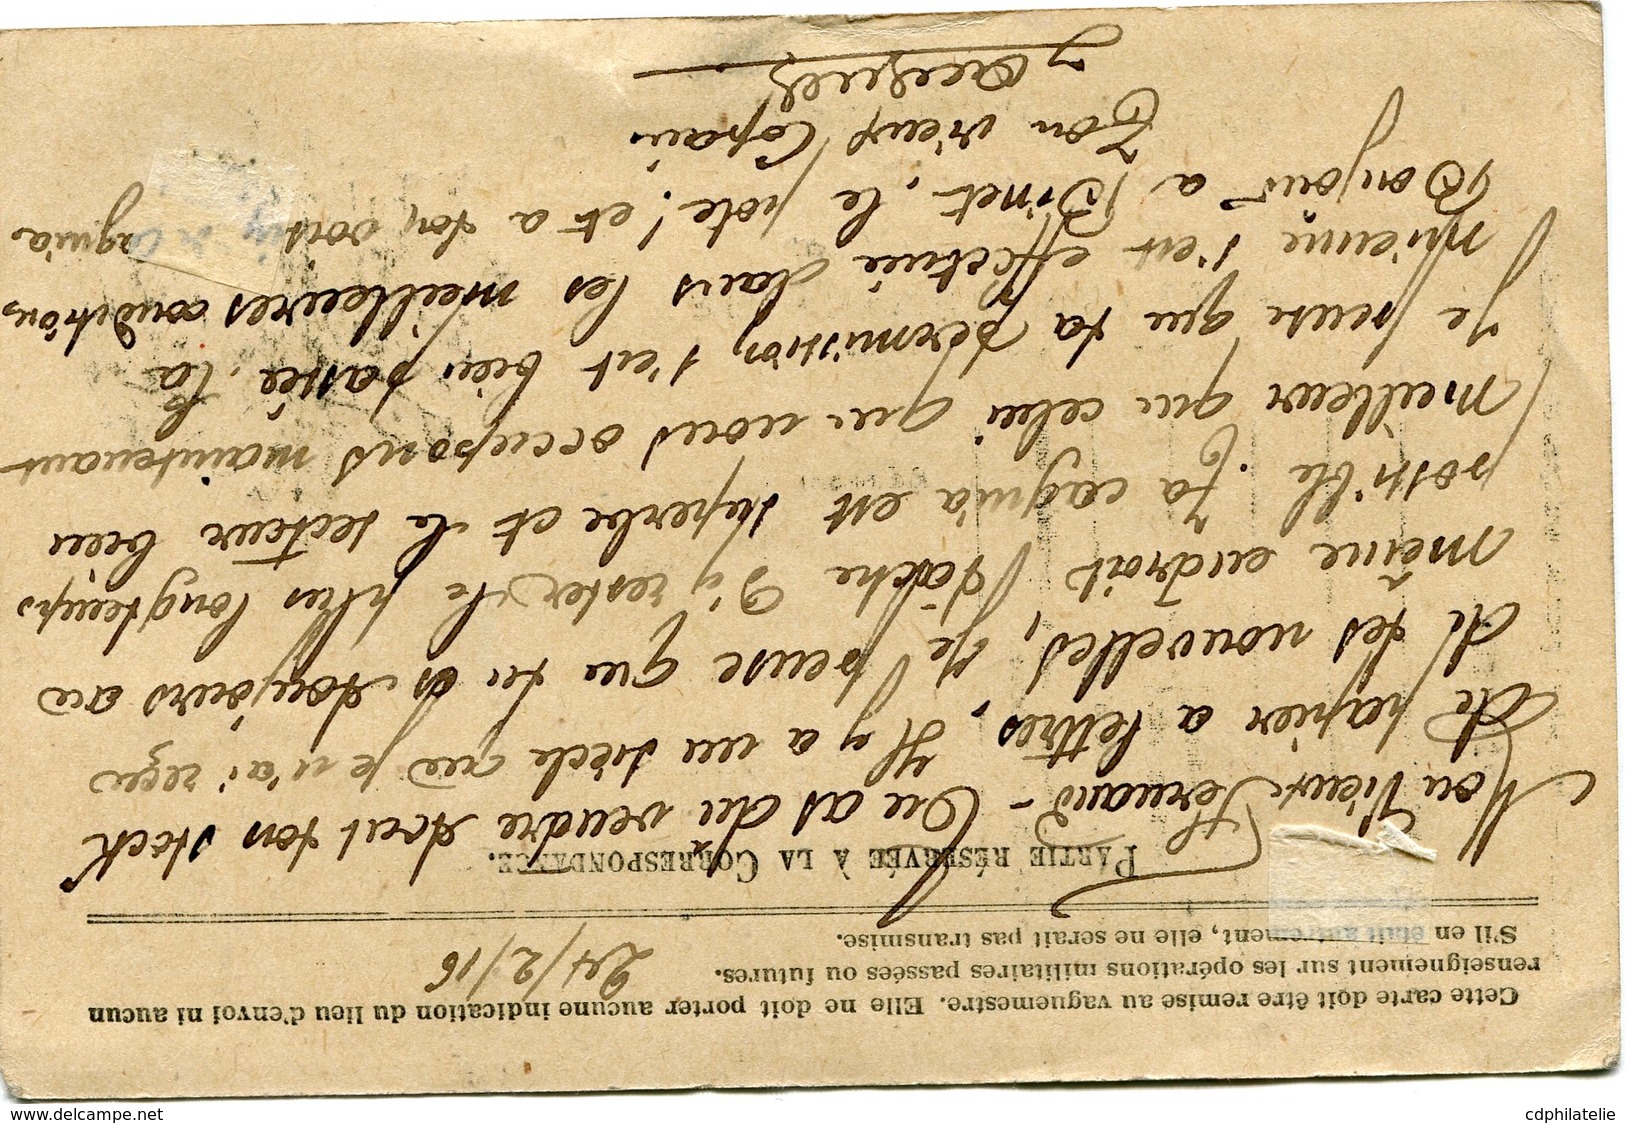 Cette carte doit être remise au vaguemestre. Elle ne doit porter aucune indication du lieu d'envoi ni aucun
renseignement sur les opérations militaires passées ou futures.
S'il en était autrement, elle ne serait pas transmise.
24/2/16
PARTIE RÉSERVÉE À LA CORRESPONDANCE.
Mon vieux Fernand - Tu as du vendre tout ton stock
de papier a lettres, Il y a un siècle que je n'ai reçu
de tes nouvelles, Je pense que tu es toujours au
même endroit tâche d'y rester le plus longtemps
possible. Ta cagnia est superbe et le secteur bien
meilleur que celui que nous occupons maintenant
Je pense que ta permission s'est bien passée. La
mienne s'est effectuée dans les meilleures conditions
Bonjour a Binet, le pote! et a ton cagnia
Ton vieux Copain
Jacques
cdphilatelie